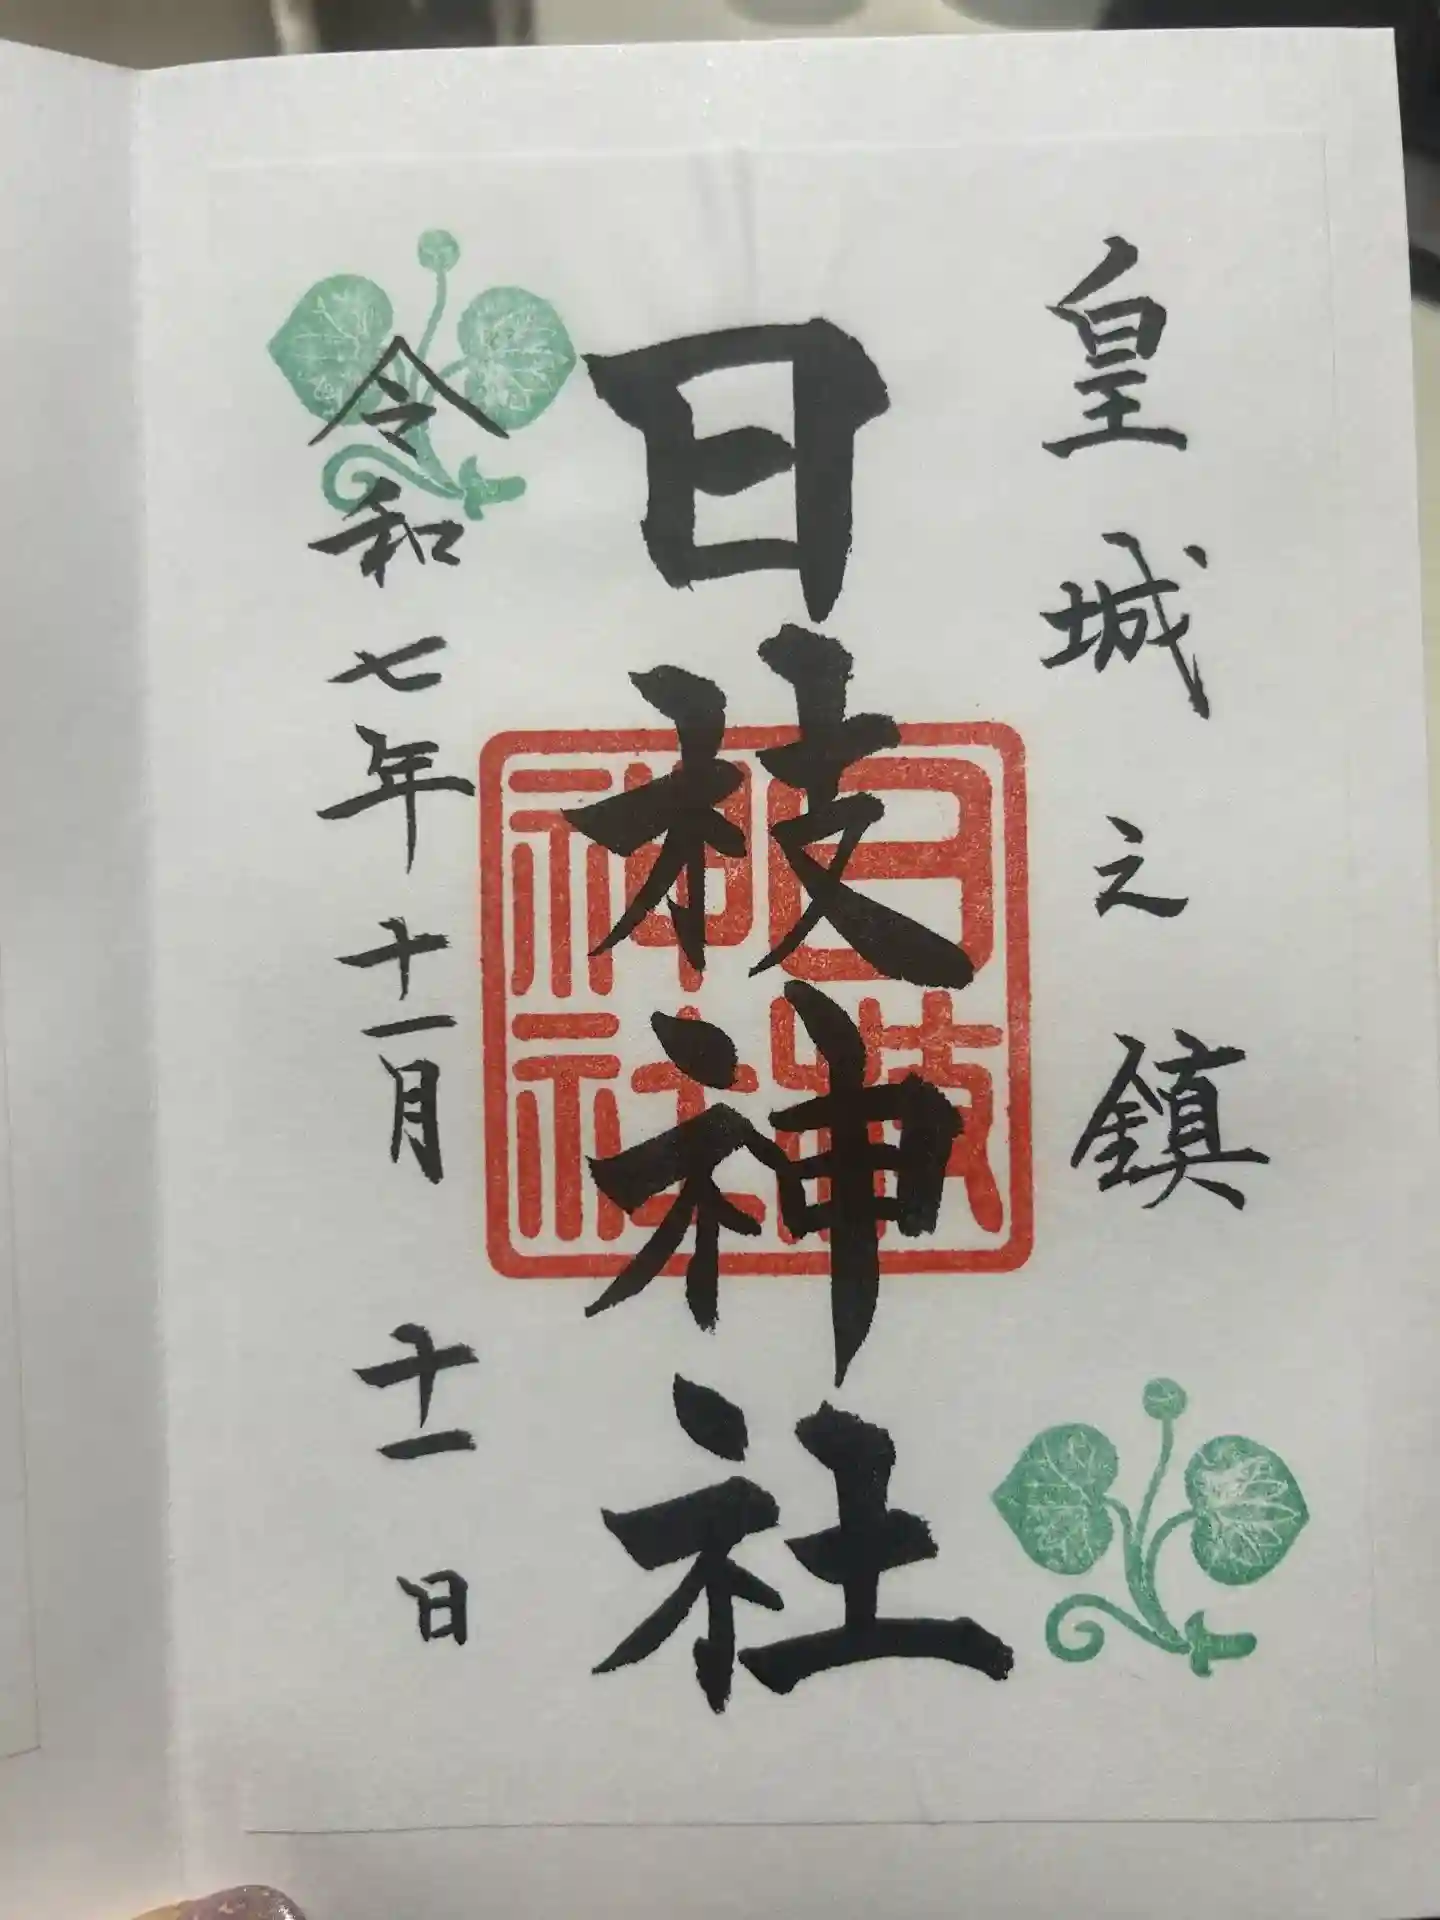 皇城之鎮
日枝神社
日枝神社
令和七年十一月十一日